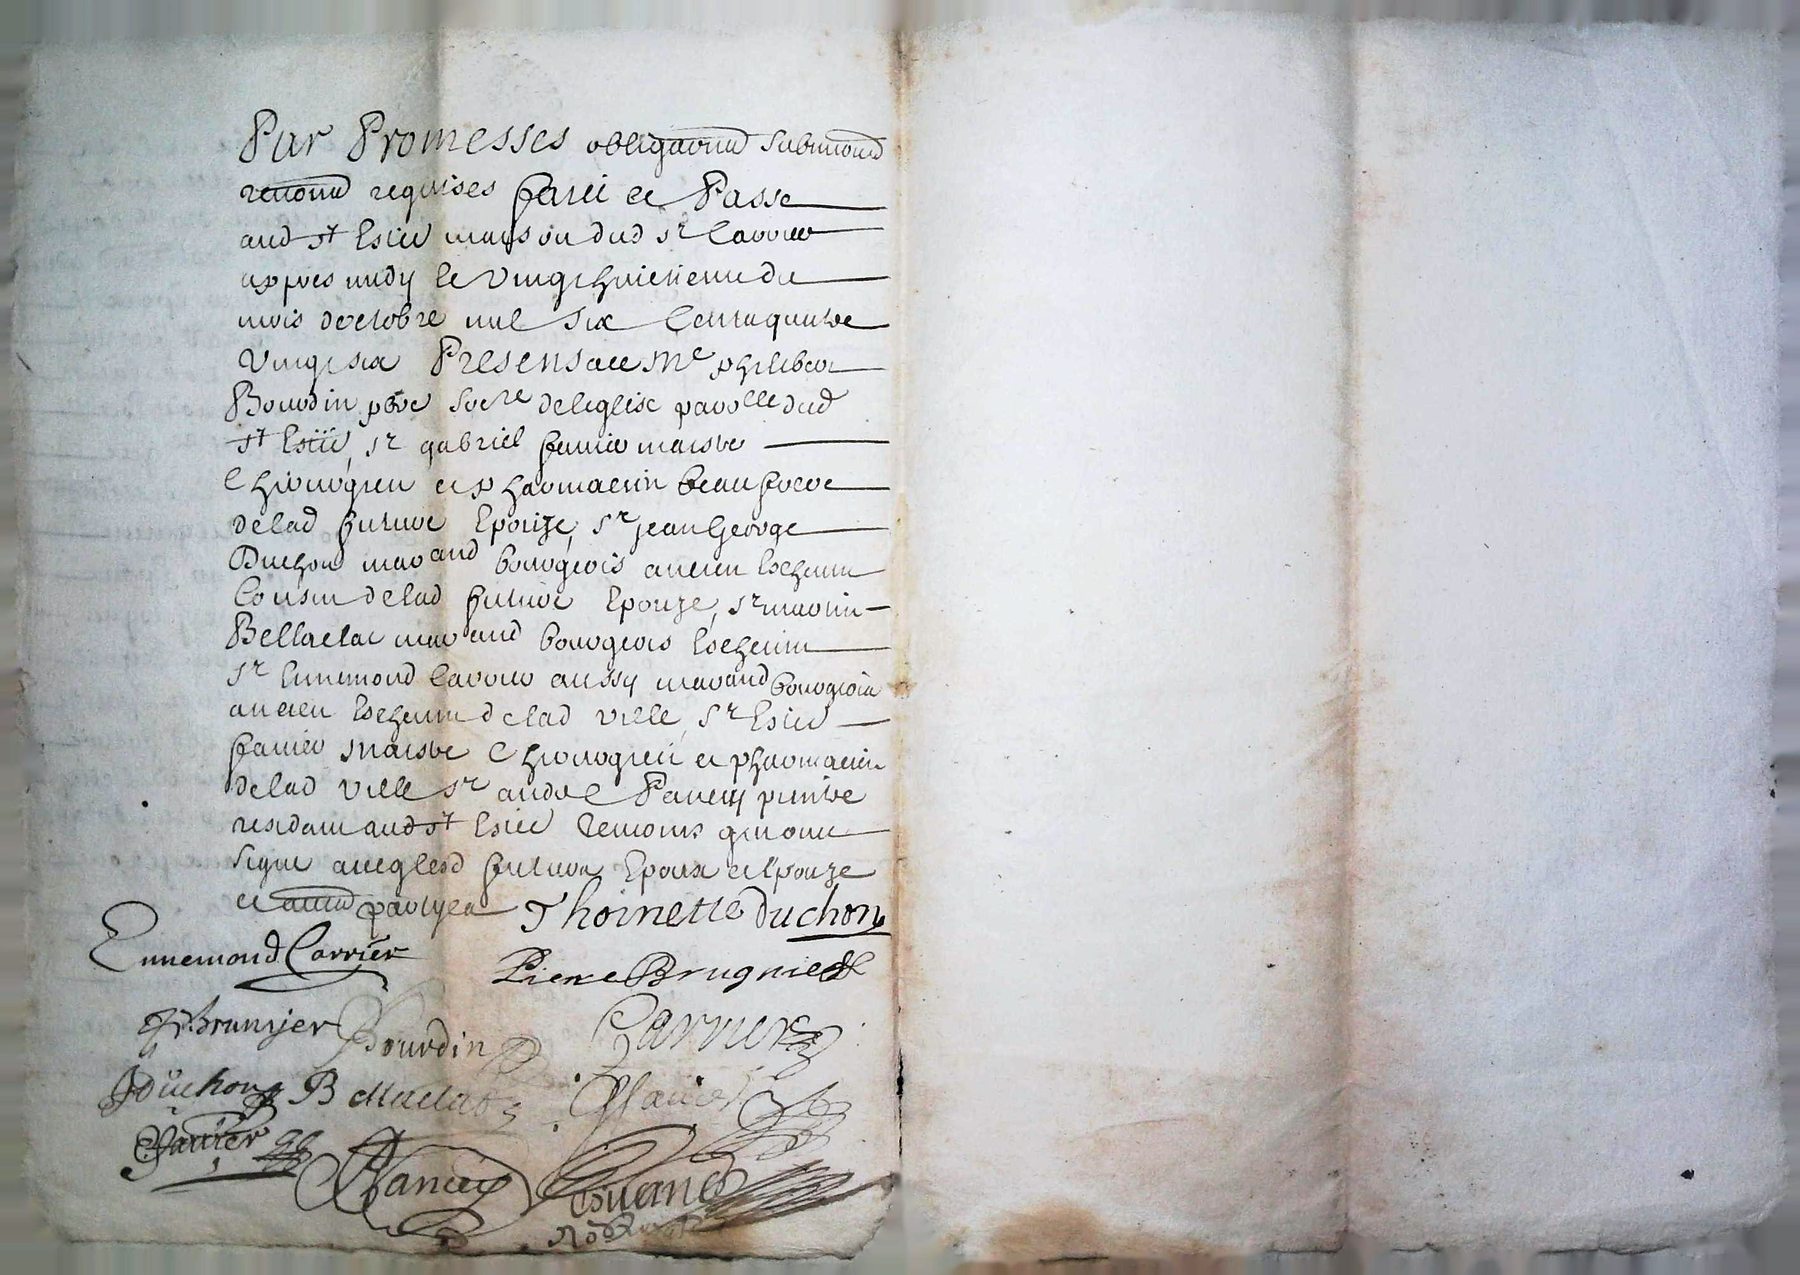 Par Promesses obligaons submions
renons requises fait et Passe
aud st Estie maison dud sr Carrier
appres midy le vingthuictieme du
mois doctobre mil six Centz quatre
vingt six Presens a ce Me philibert
Bourdin pbre socre de leglise parolle dud
st Estie, sr gabriel favier maistre
Chirurgien et pharmacien beau frere
de lad future Epouze, sr jean George
Duchon marand bourgeois ancien Eschevin
Cousin de lad future Epouze, sr martin
Bellaclat marand bourgeois Eschevin
sr Ennemond Carrier aussy marand bourgeois
ancien Eschevin de lad ville, sr Estie
favier maistre Chirurgien et pharmacien
de lad ville sr andre Pancy peintre
residant aud st Estie temoins qui ont
signe avec lesd futurs Epoux et Epouze
et autres partyes Thoinette duchon
Ennemond Carrier Pierre Brugnier
Brunyer Bourdin Carrier
Duchon Bellaclat favier
favier Pancy